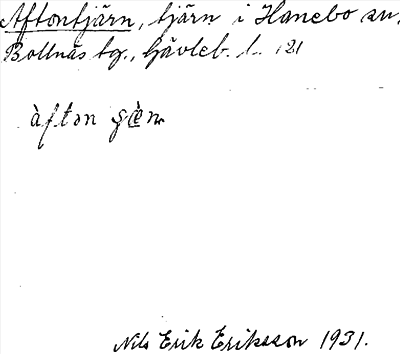 Aftontjärn, tjärn i Hanebo sn.
Bollnäs tg., Gävleb. l.
àfton
Nils Erik Eriksson 1931.